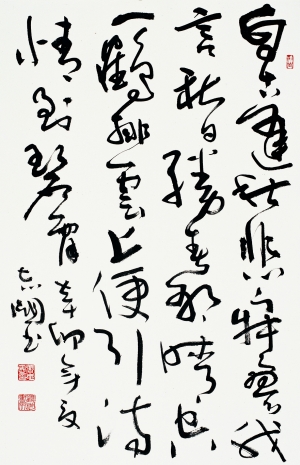 自古逢秋悲寂寥我
言秋日勝春朝晴空
一鶴排雲上便引詩
情到碧霄 辛卯年夏
书